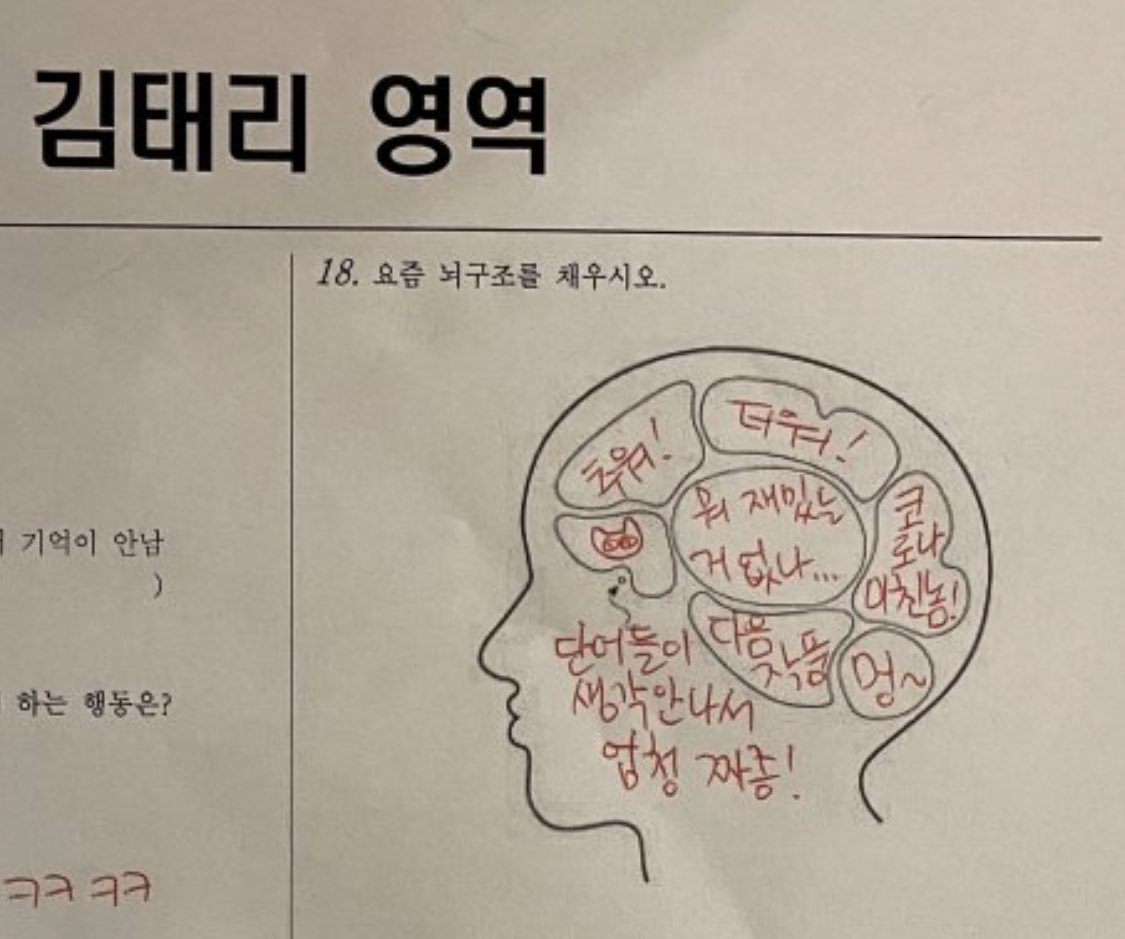 김태리 영역
18. 요즘 뇌구조를 채우시오.
추워!
더워!
뭐 재밌는
거 없나...
코
로나
미친놈!
다음
작품
멍~
단어들이
생각안나서
엄청 짜증!
기억이 안남
)
하는 행동은?
ㅋㅋㅋㅋ